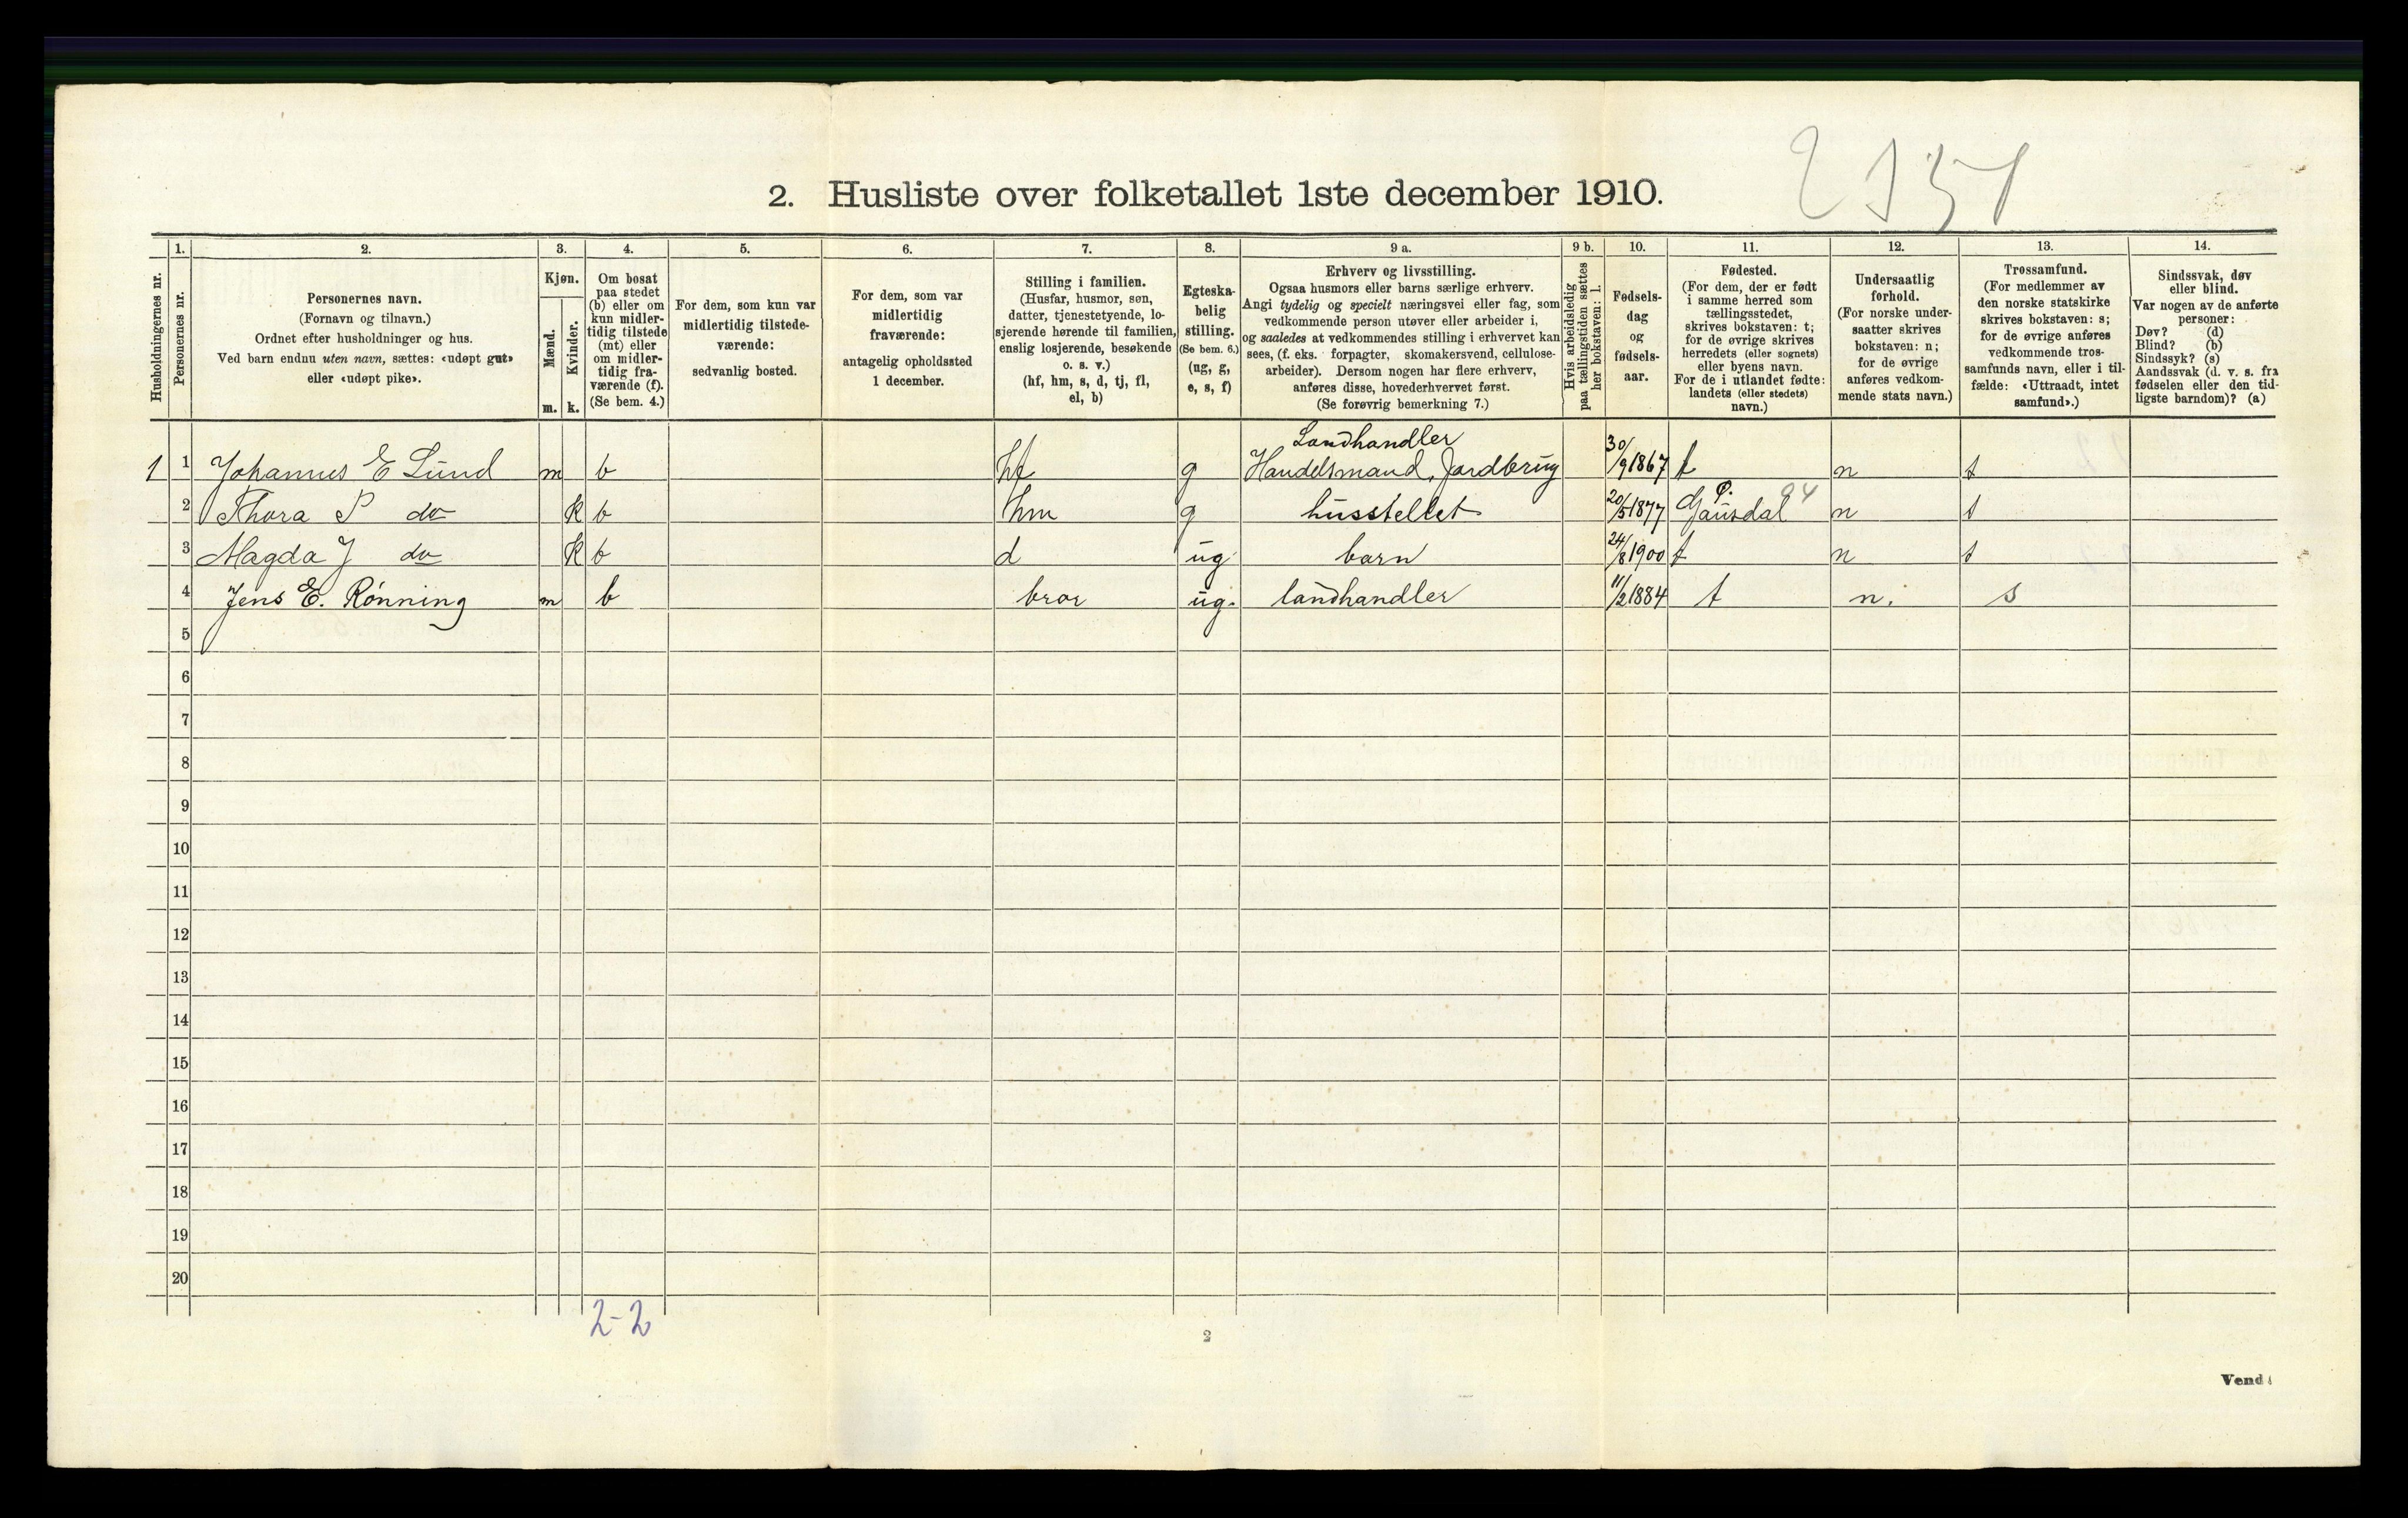 2131
2. Husliste over folketallet 1ste december 1910.
Husholdningernes nr.
1. Personernes nr.
2. Personernes navn.
(Fornavn og tilnavn.)
Ordnet efter husholdninger og hus.
Ved barn endnu uten navn, sættes: «udøpt gut»
eller «udøpt pike».
3. Kjøn.
Mænd. m.
Kvinder. k.
4. Om bosat
paa stedet
(b) eller om
kun midler-
tidig tilstede
(mt) eller
om midler-
tidig fra-
værende (f).
(Se bem. 4.)
5. For dem, som kun var
midlertidig tilstede-
værende:
sedvanlig bosted.
6. For dem, som var
midlertidig
fraværende:
antagelig opholdssted
1 december.
7. Stilling i familien.
(Husfar, husmor, søn,
datter, tjenestetyende, lo-
sjerende hørende til familien,
enslig losjerende, besøkende
o. s. v.)
(hf, hm, s, d, tj, fl,
el, b)
8. Egteska-
belig
stilling.
(Se bem. 6.)
(ug, g,
e, s, f)
9 a. Erhverv og livsstilling.
Ogsaa husmors eller barns særlige erhverv.
Angi tydelig og specielt næringsvei eller fag, som
vedkommende person utøver eller arbeider i,
og saaledes at vedkommendes stilling i erhvervet kan
sees, (f. eks. forpagter, skomakersvend, cellulose-
arbeider). Dersom nogen har flere erhverv,
anføres disse, hovederhvervet først.
(Se forøvrig bemerkning 7.)
9 b. Hvis arbeidsledig
paa tællingstiden sættes
her bokstaven: l.
10. Fødsels-
dag
og
fødsels-
aar.
11. Fødested.
(For dem, der er født
i samme herred som
tællingsstedet,
skrives bokstaven: t;
for de øvrige skrives
herredets (eller sognets)
eller byens navn.
For de i utlandet fødte:
landets (eller stedets)
navn.)
12. Undersaatlig
forhold.
(For norske under-
saatter skrives
bokstaven: n;
for de øvrige
anføres vedkom-
mende stats navn.)
13. Trossamfund.
(For medlemmer av
den norske statskirke
skrives bokstaven: s;
for de øvrige anføres
vedkommende tros-
samfunds navn, eller i til-
fælde: «Uttraadt, intet
samfund».)
14. Sindssvak, døv
eller blind.
Var nogen av de anførte
personer:
Døv? (d)
Blind? (b)
Sindssyk? (s)
Aandssvak (d. v. s. fra
fødselen eller den tid-
ligste barndom)? (a)
Landhandler
1 1 Johannes E Lund m b hf g Handelsmand, Jordbrug 30/9 1867 t n s
2 Thora P do k b hm g husstellet 20/5 1877 Ø. Gausdal 94 n s
3 Magda J do k b d ug barn 24/8 1900 t n s
4 Jens E. Rønning m b bror ug. landhandler 11/2 1884 t n. s
5
6
7
8
9
10
11
12
13
14
15
16
17
18
19
20
2-2
2
Vend